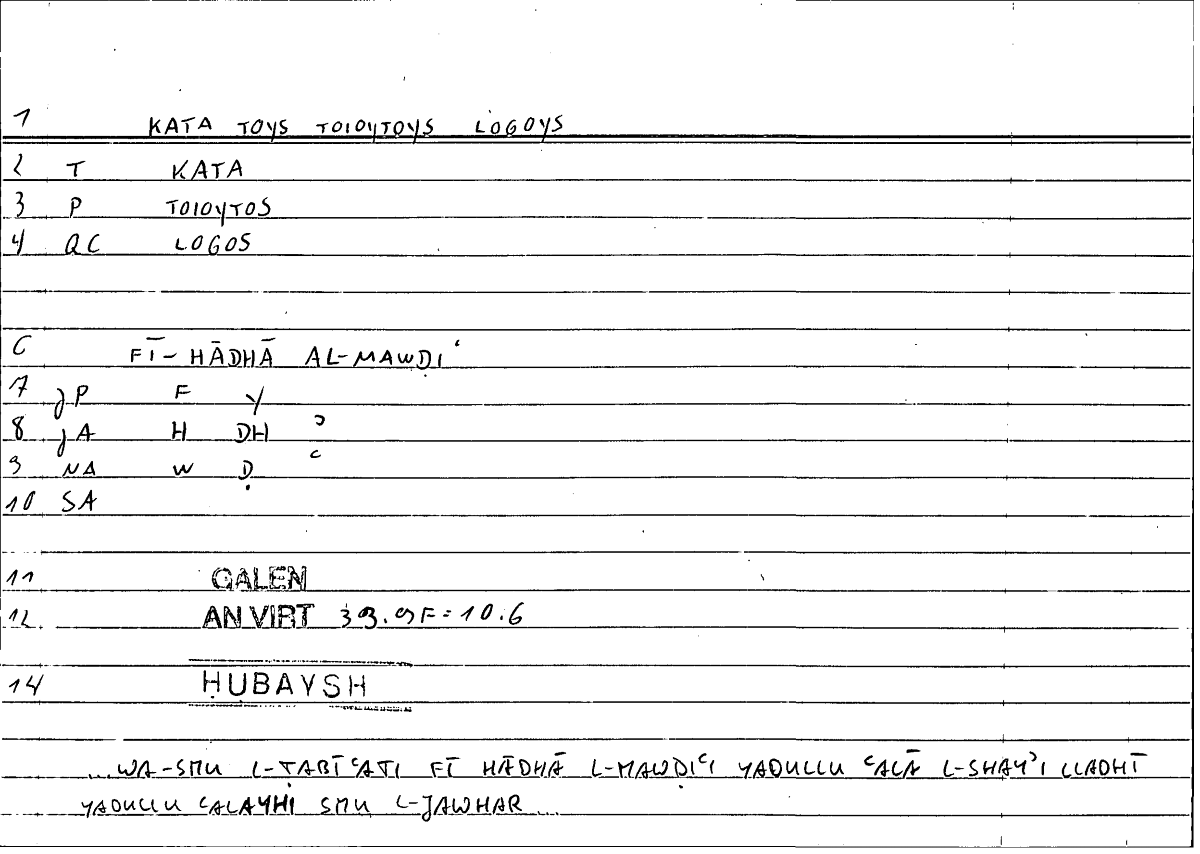 1 KATA TOYS TOIOYTOYS LOGOYS
2 T KATA
3 P TOIOYTOS
4 QC LOGOS
6 FĪ-HĀDHĀ AL-MAWḌIʿ
7 JP F Y
8 JA H DH ʾ
9 NA W Ḍ ʿ
10 SA
11 GALEN
12 AN VIRT 39.9F=10.6
14 ḤUBAYSH
...WA-SMU L-ṬABĪʿATI FĪ HĀDHĀ L-MAWḌIʿI YADULLU ʿALĀ L-SHAYʾI LLADHĪ
YADULLU ʿALAYHI SMU L-JAWHAR...